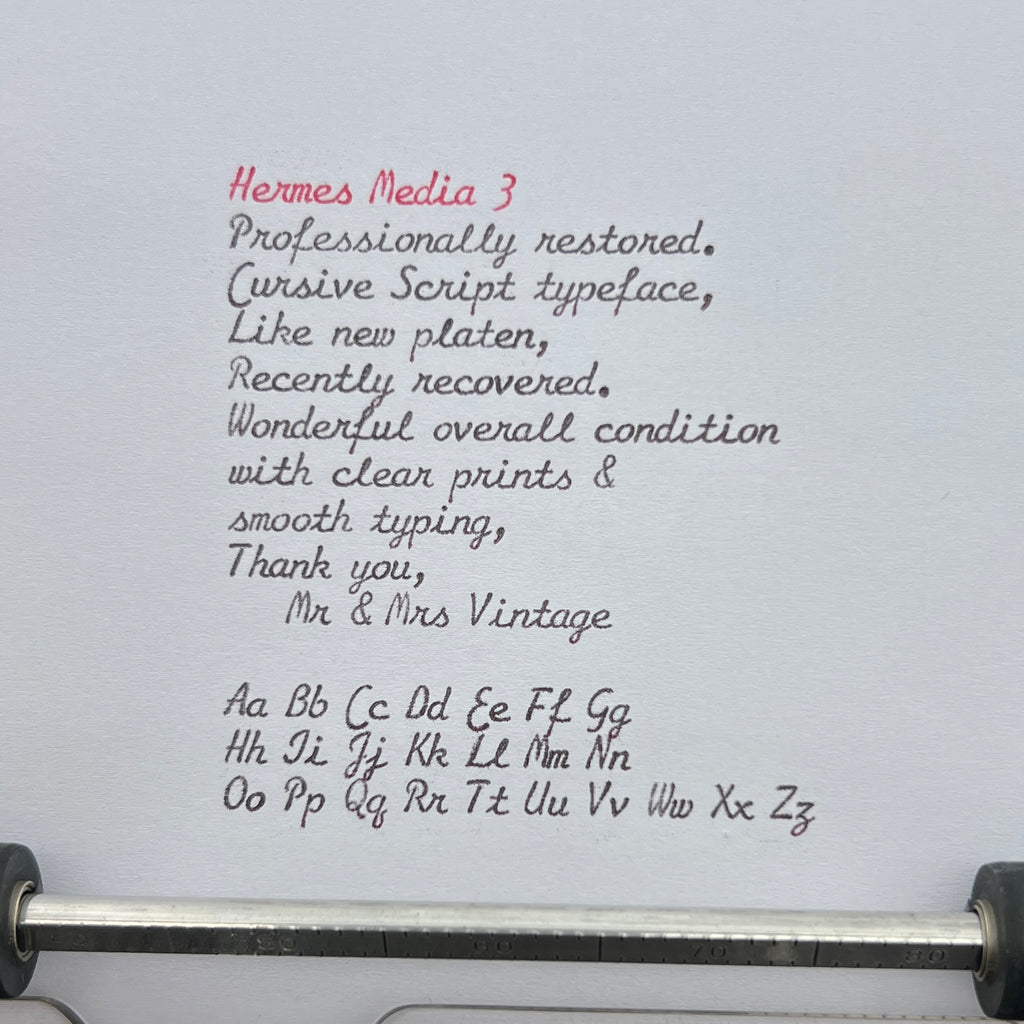 Hermes Media 3
Professionally restored.
Cursive Script typeface,
Like new platen,
Recently recovered.
Wonderful overall condition
with clear prints &
smooth typing,
Thank you,
Mr & Mrs Vintage
Aa Bb Cc Dd Ee Ff Gg
Hh Ii Jj Kk Ll Mm Nn
Oo Pp Qq Rr Tt Uu Vv Ww Xx Zz
60 70 80